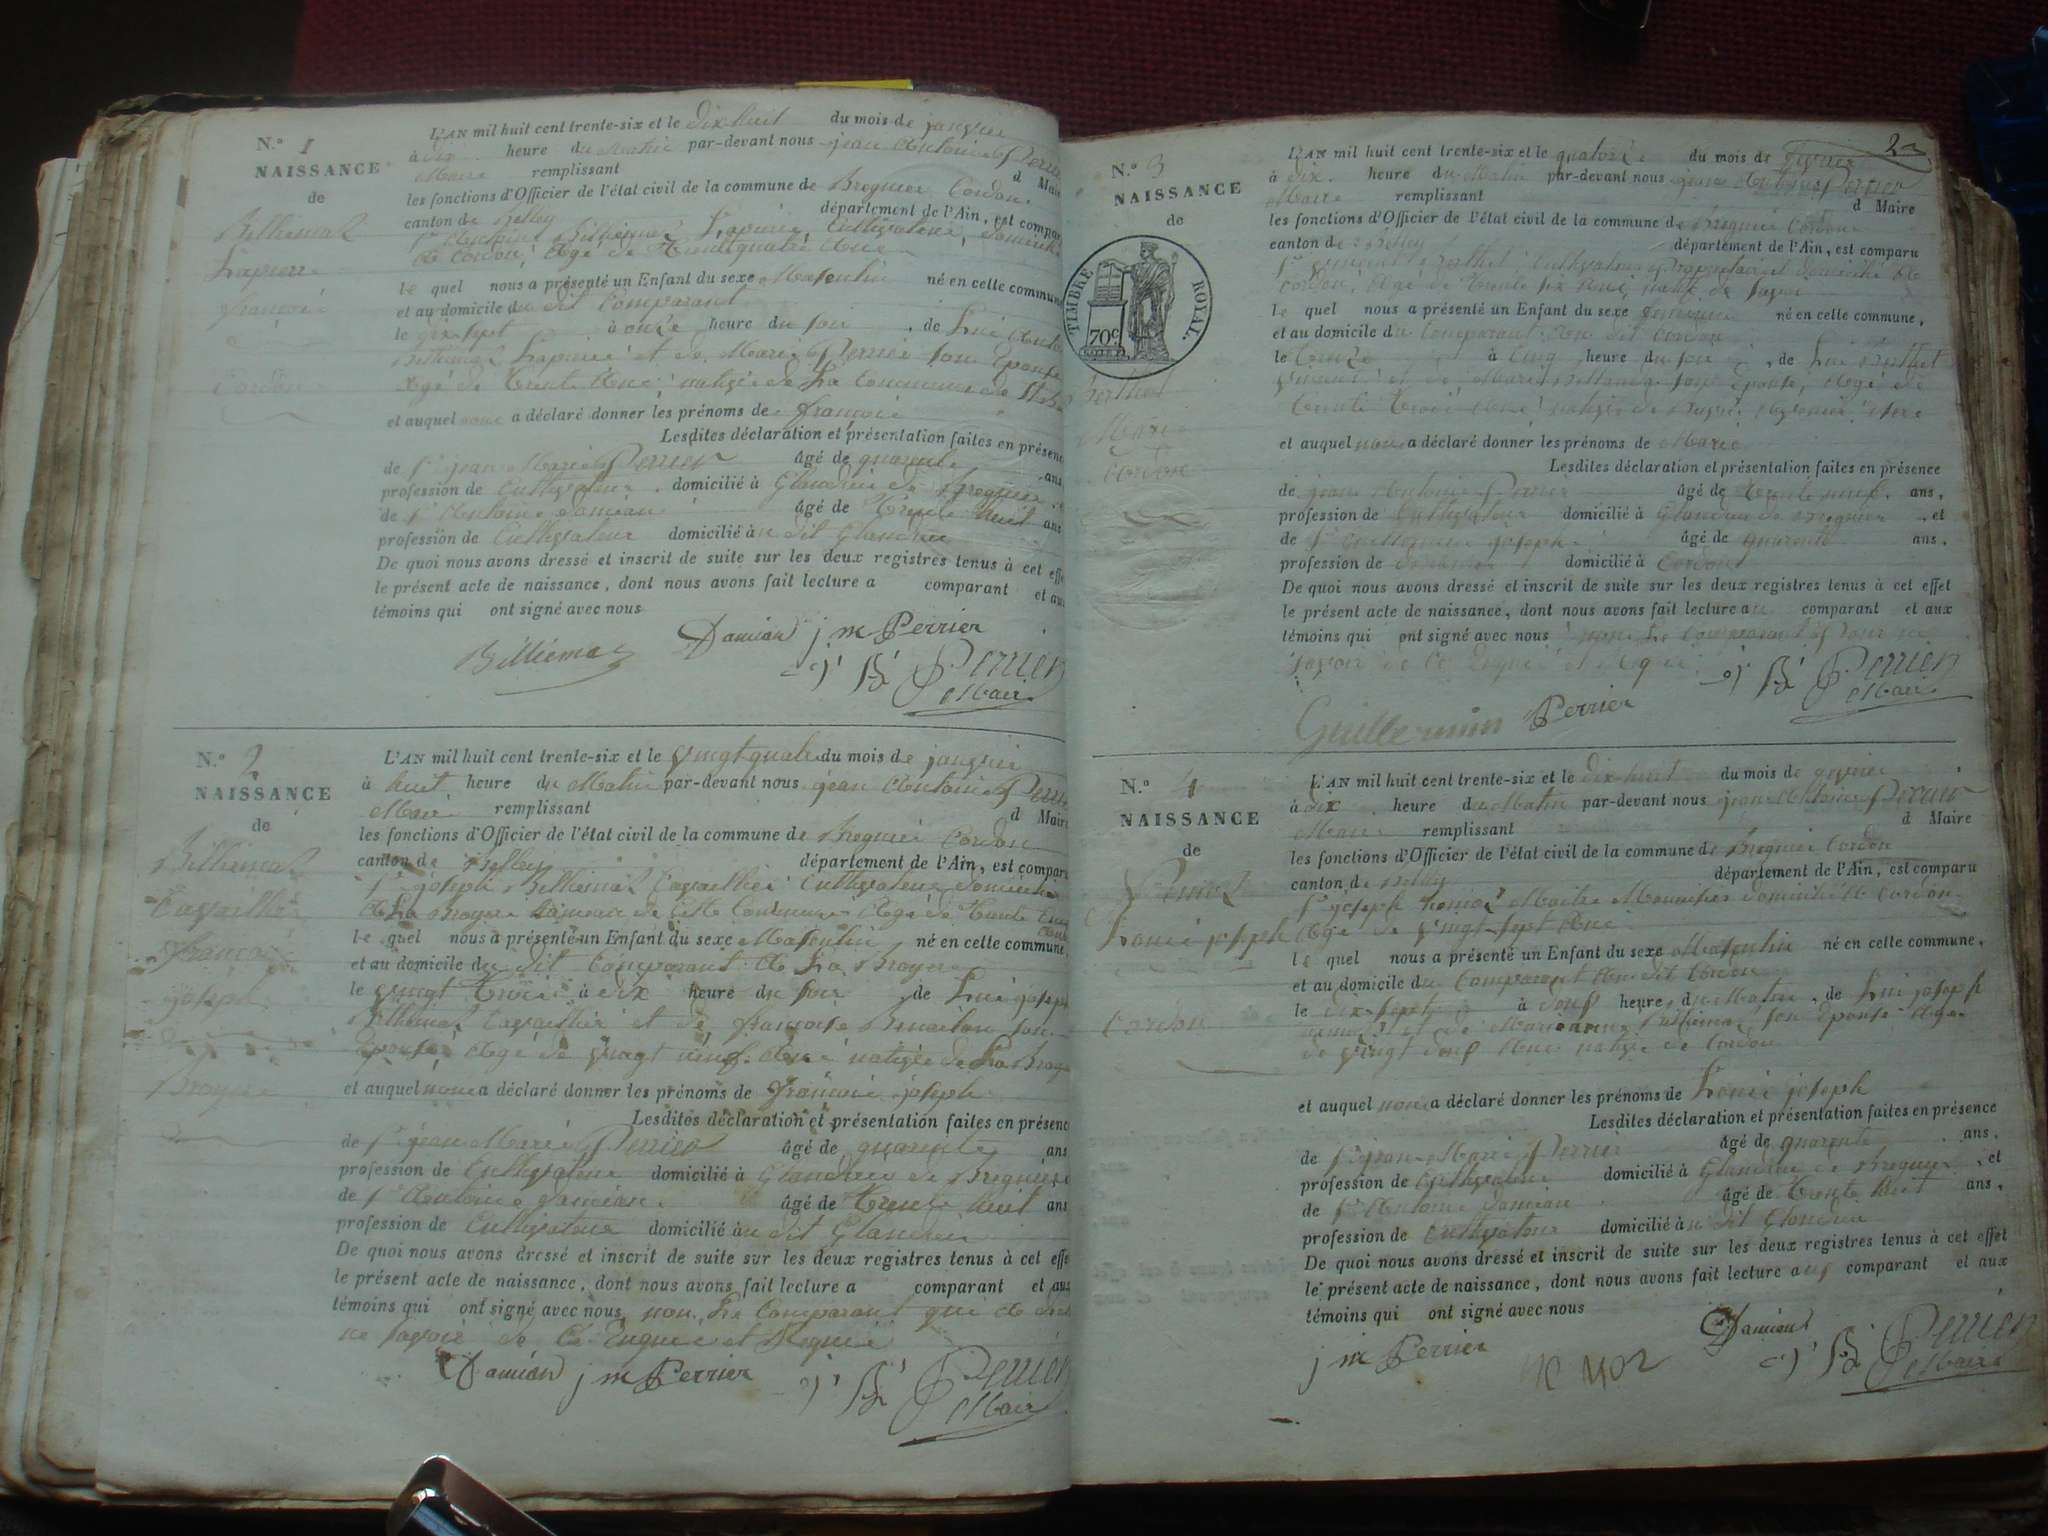 N.° 1
NAISSANCE
de
Billiemaz
Lapierre
françois
Cordon
L'AN mil huit cent trente-six et le dix huit du mois de janvier
à dix heure du Matin par-devant nous jean Antoine Perrier
Maire remplissant d Maire
les fonctions d'Officier de l'état civil de la commune de Bregnier Cordon
canton de Belley département de l'Ain, est compar
Sr Antoine Billiemaz Lapierre Cultivateur, domicilié
de Cordon, Agé de Trente quatre Ans
le quel nous a présenté un Enfant du sexe Masculin né en cette commune
et au domicile du dit Comparant
le dix sept à onze heure du soir, de Lui Antoine
Billiemaz Lapierre et de Marie Perrier son Epouse
Agé de Trente Ans native de La Commune de
et auquel nous a déclaré donner les prénoms de françois
Lesdites déclaration et présentation faites en présenc
de Sr jean Marie Perrier âgé de quarante ans
profession de Cultivateur domicilié à Glandieu de Bregnier
de Sr Antoine Damian âgé de Trente huit ans
profession de Cultivateur domicilié au dit Glandieu
De quoi nous avons dressé et inscrit de suite sur les deux registres tenus à cet effe
le présent acte de naissance, dont nous avons fait lecture a comparant et aux
témoins qui ont signé avec nous
Billiemaz Damian j m Perrier
Perrier
Maire
N.° 2
NAISSANCE
de
Billiemaz
Cavaillier
françois
joseph
Broyere
L'AN mil huit cent trente-six et le vingt quatre du mois de janvier
à huit heure du Matin par-devant nous jean Antoine Perrier
Maire remplissant d Maire
les fonctions d'Officier de l'état civil de la commune de Bregnier Cordon
canton de Belley département de l'Ain, est compar
Sr joseph Billiemaz Cavaillier Cultivateur domicilié
de La Broyere de Cette Commune Agé de Trente
le quel nous a présenté un Enfant du sexe Masculin né en cette commune,
et au domicile du dit Comparant de La Broyere
le vingt trois à dix heure du soir de Lui joseph
Billiemaz Cavaillier et de françoise son
Epouse Agé de vingt neuf Ans native de La Broye
et auquel nous a déclaré donner les prénoms de françois joseph
Lesdites déclaration et présentation faites en présenc
de Sr jean Marie Perrier âgé de quarante ans
profession de Cultivateur domicilié à Glandieu de Bregnier
de Sr Antoine Damian âgé de Trente huit ans
profession de Cultivateur domicilié au dit Glandieu
De quoi nous avons dressé et inscrit de suite sur les deux registres tenus à cet effe
le présent acte de naissance, dont nous avons fait lecture a comparant et aux
témoins qui ont signé avec nous non Le Comparant qui a dit
ne savoir de Ce Enquis et Requis
Damian j m Perrier Perrier
Maire
2
N.° 3
NAISSANCE
de
TIMBRE ROYAL.
70 c
Berthet
Marie
Cordon
L'AN mil huit cent trente-six et le quatorze du mois de fevrier
à dix heure du Matin par-devant nous jean Antoine Perrier
Maire remplissant d Maire
les fonctions d'Officier de l'état civil de la commune de Bregnier Cordon
canton de Belley département de l'Ain, est comparu
Sr Berthet Cultivateur Proprietaire domicilié de
Cordon, Agé de Trente six Ans
le quel nous a présenté un Enfant du sexe feminin né en cette commune,
et au domicile du Comparant au dit Cordon
le treize à Cinq heure du soir, de Lui Berthet
et de Marie son Epouse, Agé de
trente trois Ans native de
et auquel nous a déclaré donner les prénoms de Marie
Lesdites déclaration et présentation faites en présence
de jean Antoine Perrier âgé de trente neuf ans,
profession de Cultivateur domicilié à Glandieu de Bregnier, et
de Sr Guillermin joseph âgé de quarante ans,
profession de domicilié à Cordon
De quoi nous avons dressé et inscrit de suite sur les deux registres tenus à cet effet
le présent acte de naissance, dont nous avons fait lecture au comparant et aux
témoins qui ont signé avec nous non Le Comparant pour ne
savoir de Ce Enquis et Requis
Perrier
Maire
Guillermin Perrier
N.° 4
NAISSANCE
de
Louis joseph
Cordon
L'AN mil huit cent trente-six et le dix huit du mois de fevrier
à dix heure du Matin par-devant nous jean Antoine Perrier
Maire remplissant d Maire
les fonctions d'Officier de l'état civil de la commune de Bregnier Cordon
canton de Belley département de l'Ain, est comparu
Sr joseph Maitre domicilié de Cordon
Agé de vingt sept Ans
le quel nous a présenté un Enfant du sexe Masculin né en cette commune,
et au domicile du Comparant au dit Cordon
le dix sept à heure du Matin, de Lui joseph
et de Billiemaz son Epouse Agé
de vingt Ans native de Cordon
et auquel nous a déclaré donner les prénoms de Louis joseph
Lesdites déclaration et présentation faites en présence
de Sr jean Marie Perrier âgé de quarante ans,
profession de Cultivateur domicilié à Glandieu de Bregnier, et
de Sr Antoine Damian âgé de trente huit ans,
profession de Cultivateur domicilié au dit Glandieu
De quoi nous avons dressé et inscrit de suite sur les deux registres tenus à cet effet
le présent acte de naissance, dont nous avons fait lecture aux comparant et aux
témoins qui ont signé avec nous
j m Perrier Damian
Perrier
Maire